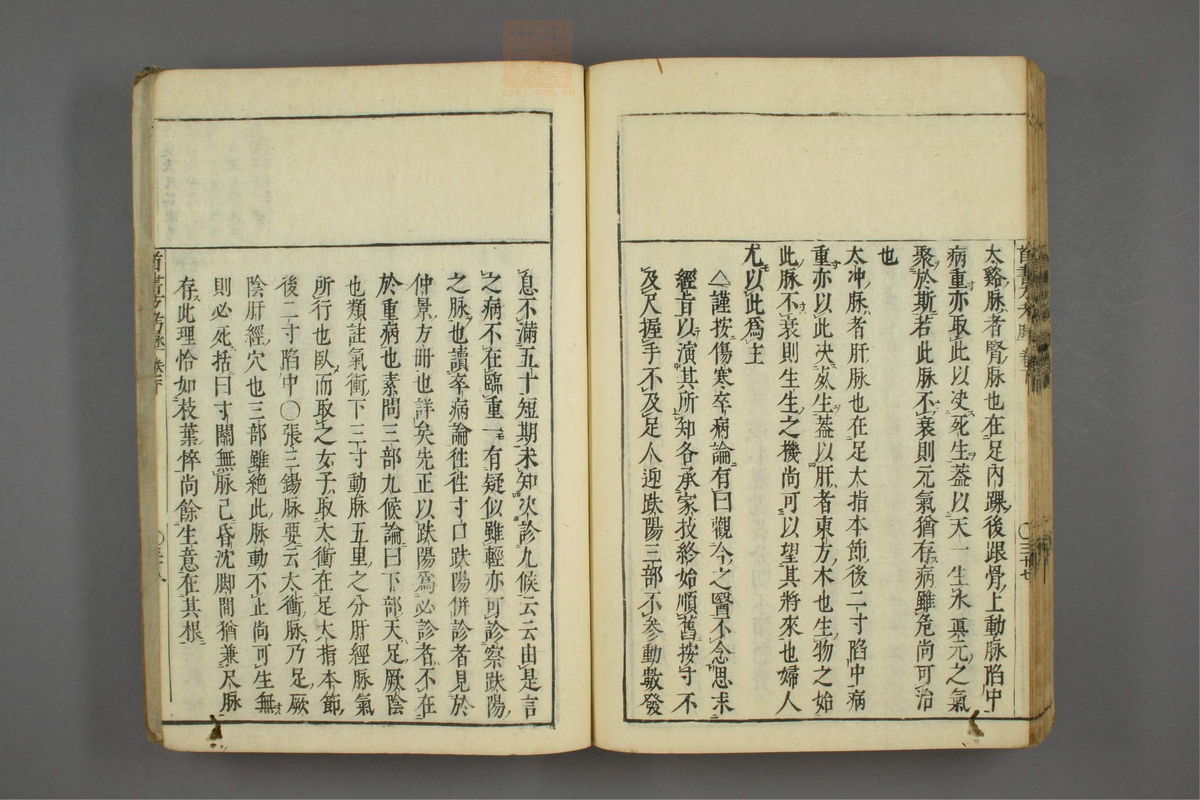 太谿脉者腎脉也在足內踝後跟骨上動脉陷中
病重亦取此以决死生葢以天一生水眞元之氣
聚於斯若此脉不衰則元氣猶存病雖危尚可治
也
太冲脉者肝脉也在足大指本節後二寸陷中病
重亦以此决死生葢以肝者東方木也生物之始
此脉不衰則生生之機尚可以望其將來也婦人
尤以此爲主
△謹按傷寒卒病論有曰觀今之醫不念思未
經旨以演其所知各承家技終始順舊按寸不
及尺握手不及足人迎趺陽三部不參動數發
息不滿五十短期未知决診九候云云由是言
之病不在臨重一有疑似雖輕亦可診察趺陽
之脉也讀卒病論徃徃寸口趺陽併診者見於
仲景方册也詳矣先正以趺陽爲必診者不在
於重病也素問三部九候論曰下部天足厥陰
也類註氣衝下三寸動脉五里之分肝經脉氣
所行也臥而取之女子取太衝在足大指本節
後二寸陷中○張三錫脉要云太衝脉乃足厥
陰肝經穴也三部雖絶此脉動不止尚可生無
則必死括曰寸關無脉己昏沈脚間猶兼尺脉
存此理恰如枝葉悴尚餘生意在其根